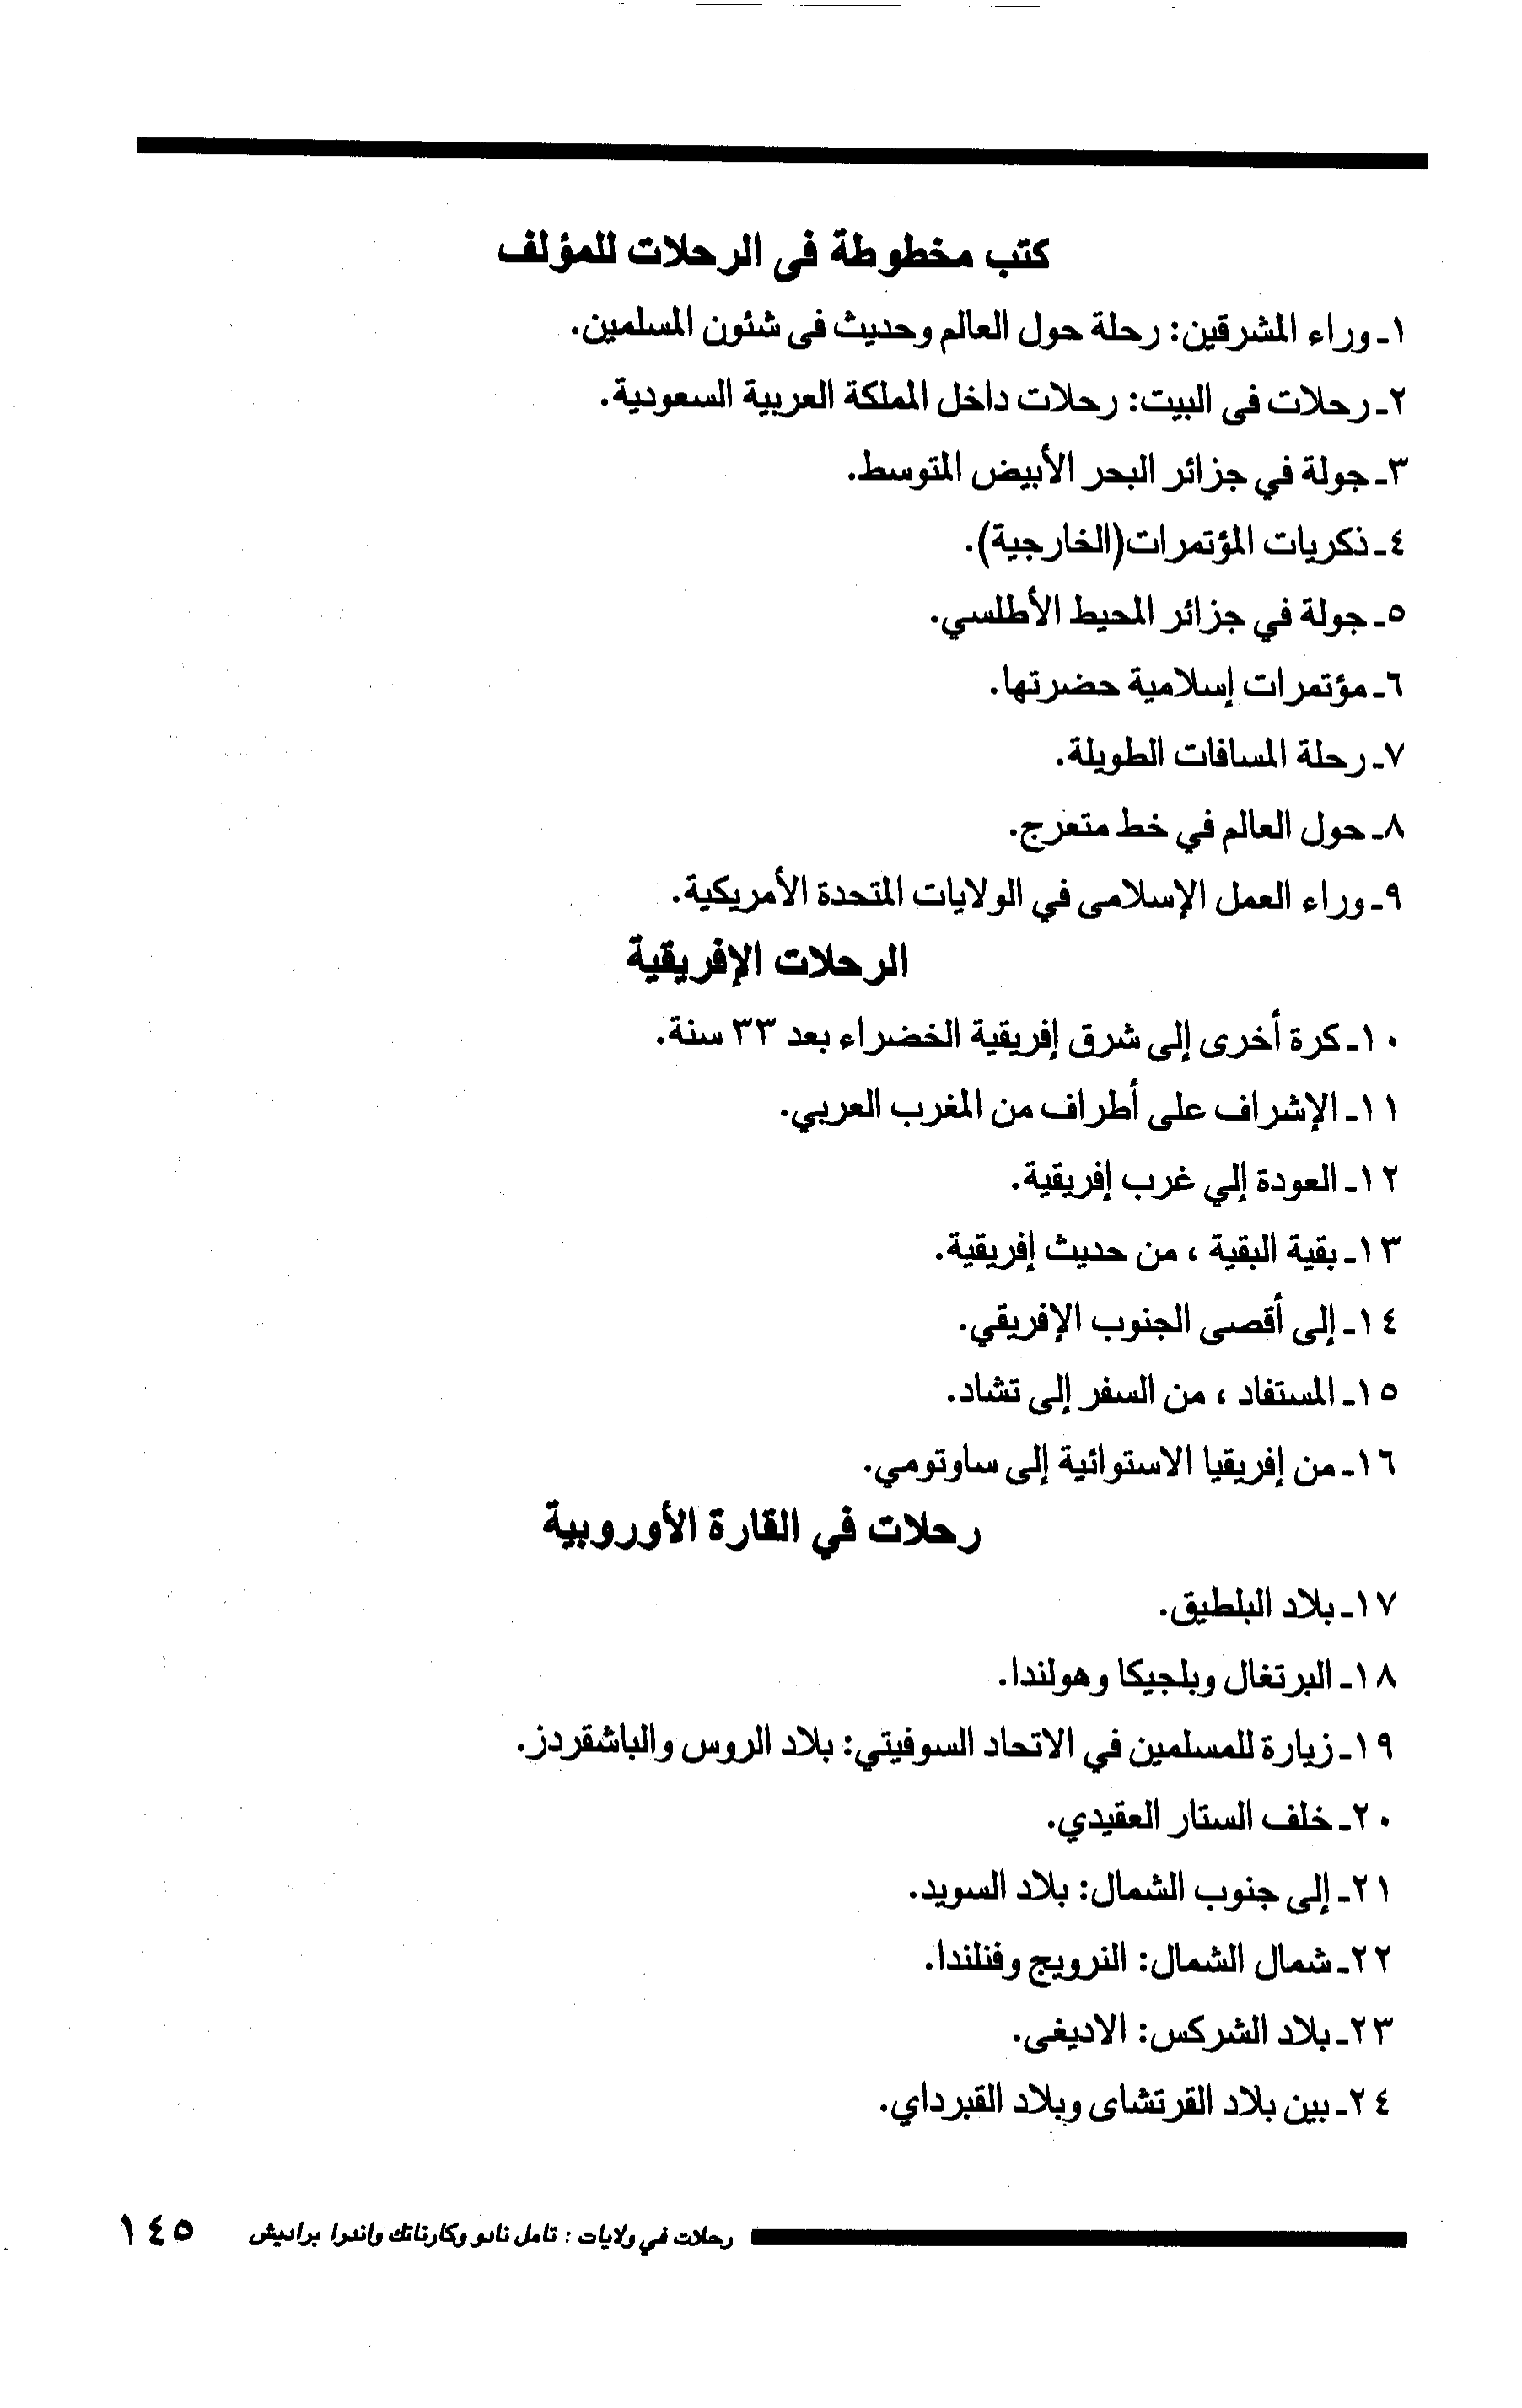 كتب مخطوطة فى الرحلات للمؤلف
١ـ وراء المشرقين: رحلة حول العالم وحديث فى شئون المسلمين.
٢ـ رحلات فى البيت: رحلات داخل المملكة العربية السعودية.
٣ـ جولة في جزائر البحر الأبيض المتوسط.
٤ـ ذكريات المؤتمرات(الخارجية).
٥ـ جولة في جزائر المحيط الأطلسي.
٦ـ مؤتمرات إسلامية حضرتها.
٧ـ رحلة المسافات الطويلة.
٨ـ حول العالم في خط متعرج.
٩ـ وراء العمل الإسلامى في الولايات المتحدة الأمريكية.
الرحلات الإفريقية
١٠ـ كرة أخرى إلى شرق إفريقية الخضراء بعد ٣٣ سنة.
١١ـ الإشراف على أطراف من المغرب العربي.
١٢ـ العودة إلي غرب إفريقية.
١٣ـ بقية البقية ، من حديث إفريقية.
١٤ـ إلى أقصى الجنوب الإفريقي.
١٥ـ المستفاد ، من السفر إلى تشاد.
١٦ـ من إفريقيا الاستوائية إلى ساوتومي.
رحلات في القارة الأوروبية
١٧ـ بلاد البلطيق.
١٨ـ البرتغال وبلجيكا وهولندا.
١٩ـ زيارة للمسلمين في الاتحاد السوفيتي: بلاد الروس والباشقردز.
٢٠ـ خلف الستار العقيدي.
٢١ـ إلى جنوب الشمال: بلاد السويد.
٢٢ـ شمال الشمال: النرويج وفنلندا.
٢٣ـ بلاد الشركس: الاديغى.
٢٤ـ بين بلاد القرتشاى وبلاد القبرداي.
رحلات في ولايات : تامل نادو وكارناتك واندرا براديش ١٤٥